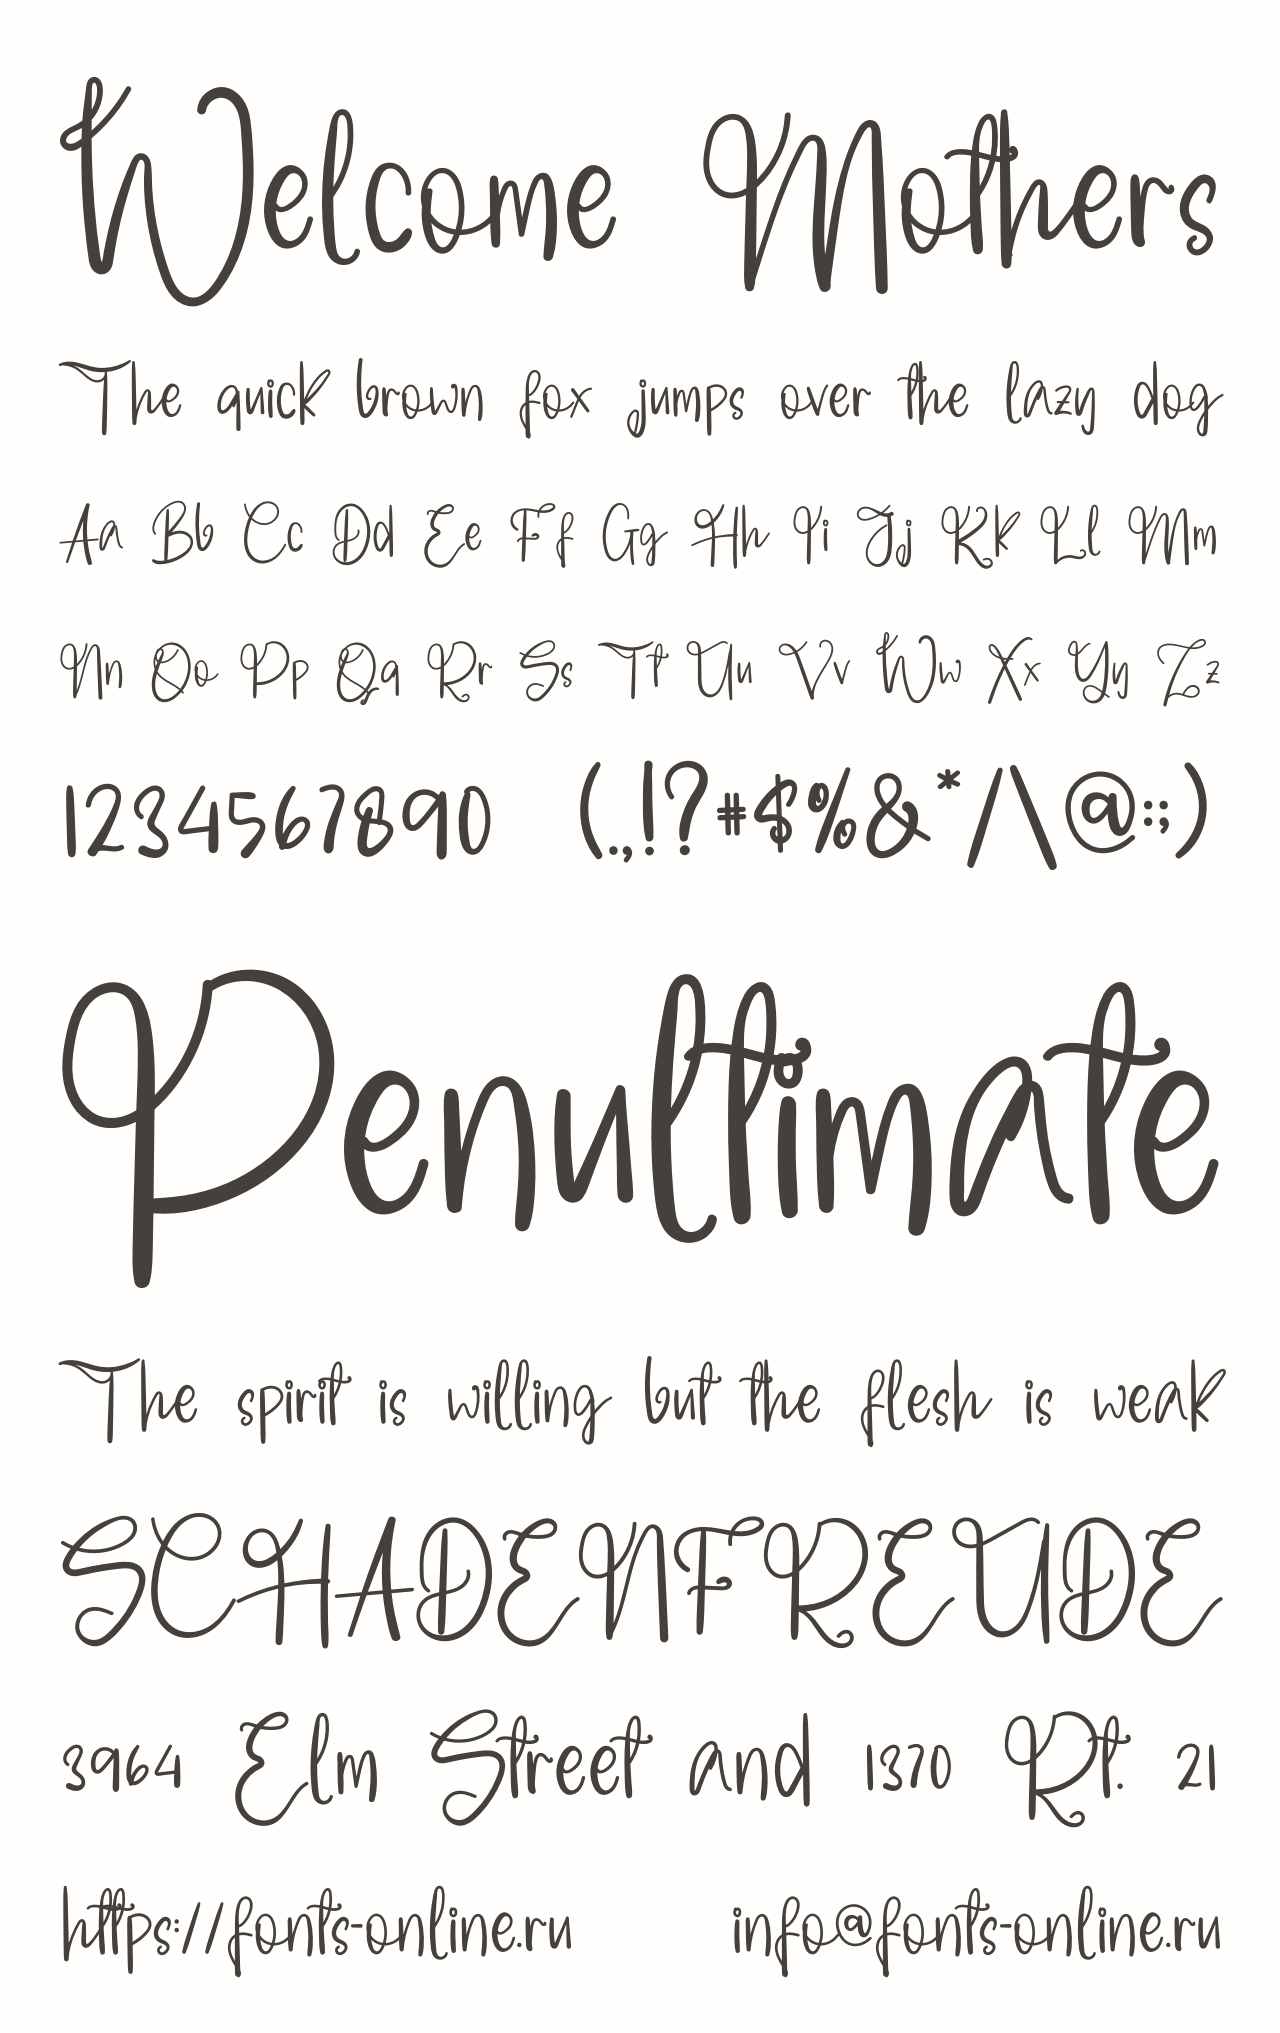 Welcome Mothers
The quick brown fox jumps over the lazy dog
Aa Bb Cc Dd Ee Ff Gg Hh Ii Jj Kk Ll Mm
Nn Oo Pp Qq Rr Ss Tt Uu Vv Ww Xx Yy Zz
1234567890 (.,!?#$%&*/\@:;)
Penultimate
The spirit is willing but the flesh is weak
SCHADENFREUDE
3964 Elm Street and 1370 Rt. 21
https://fonts-online.ru info@fonts-online.ru